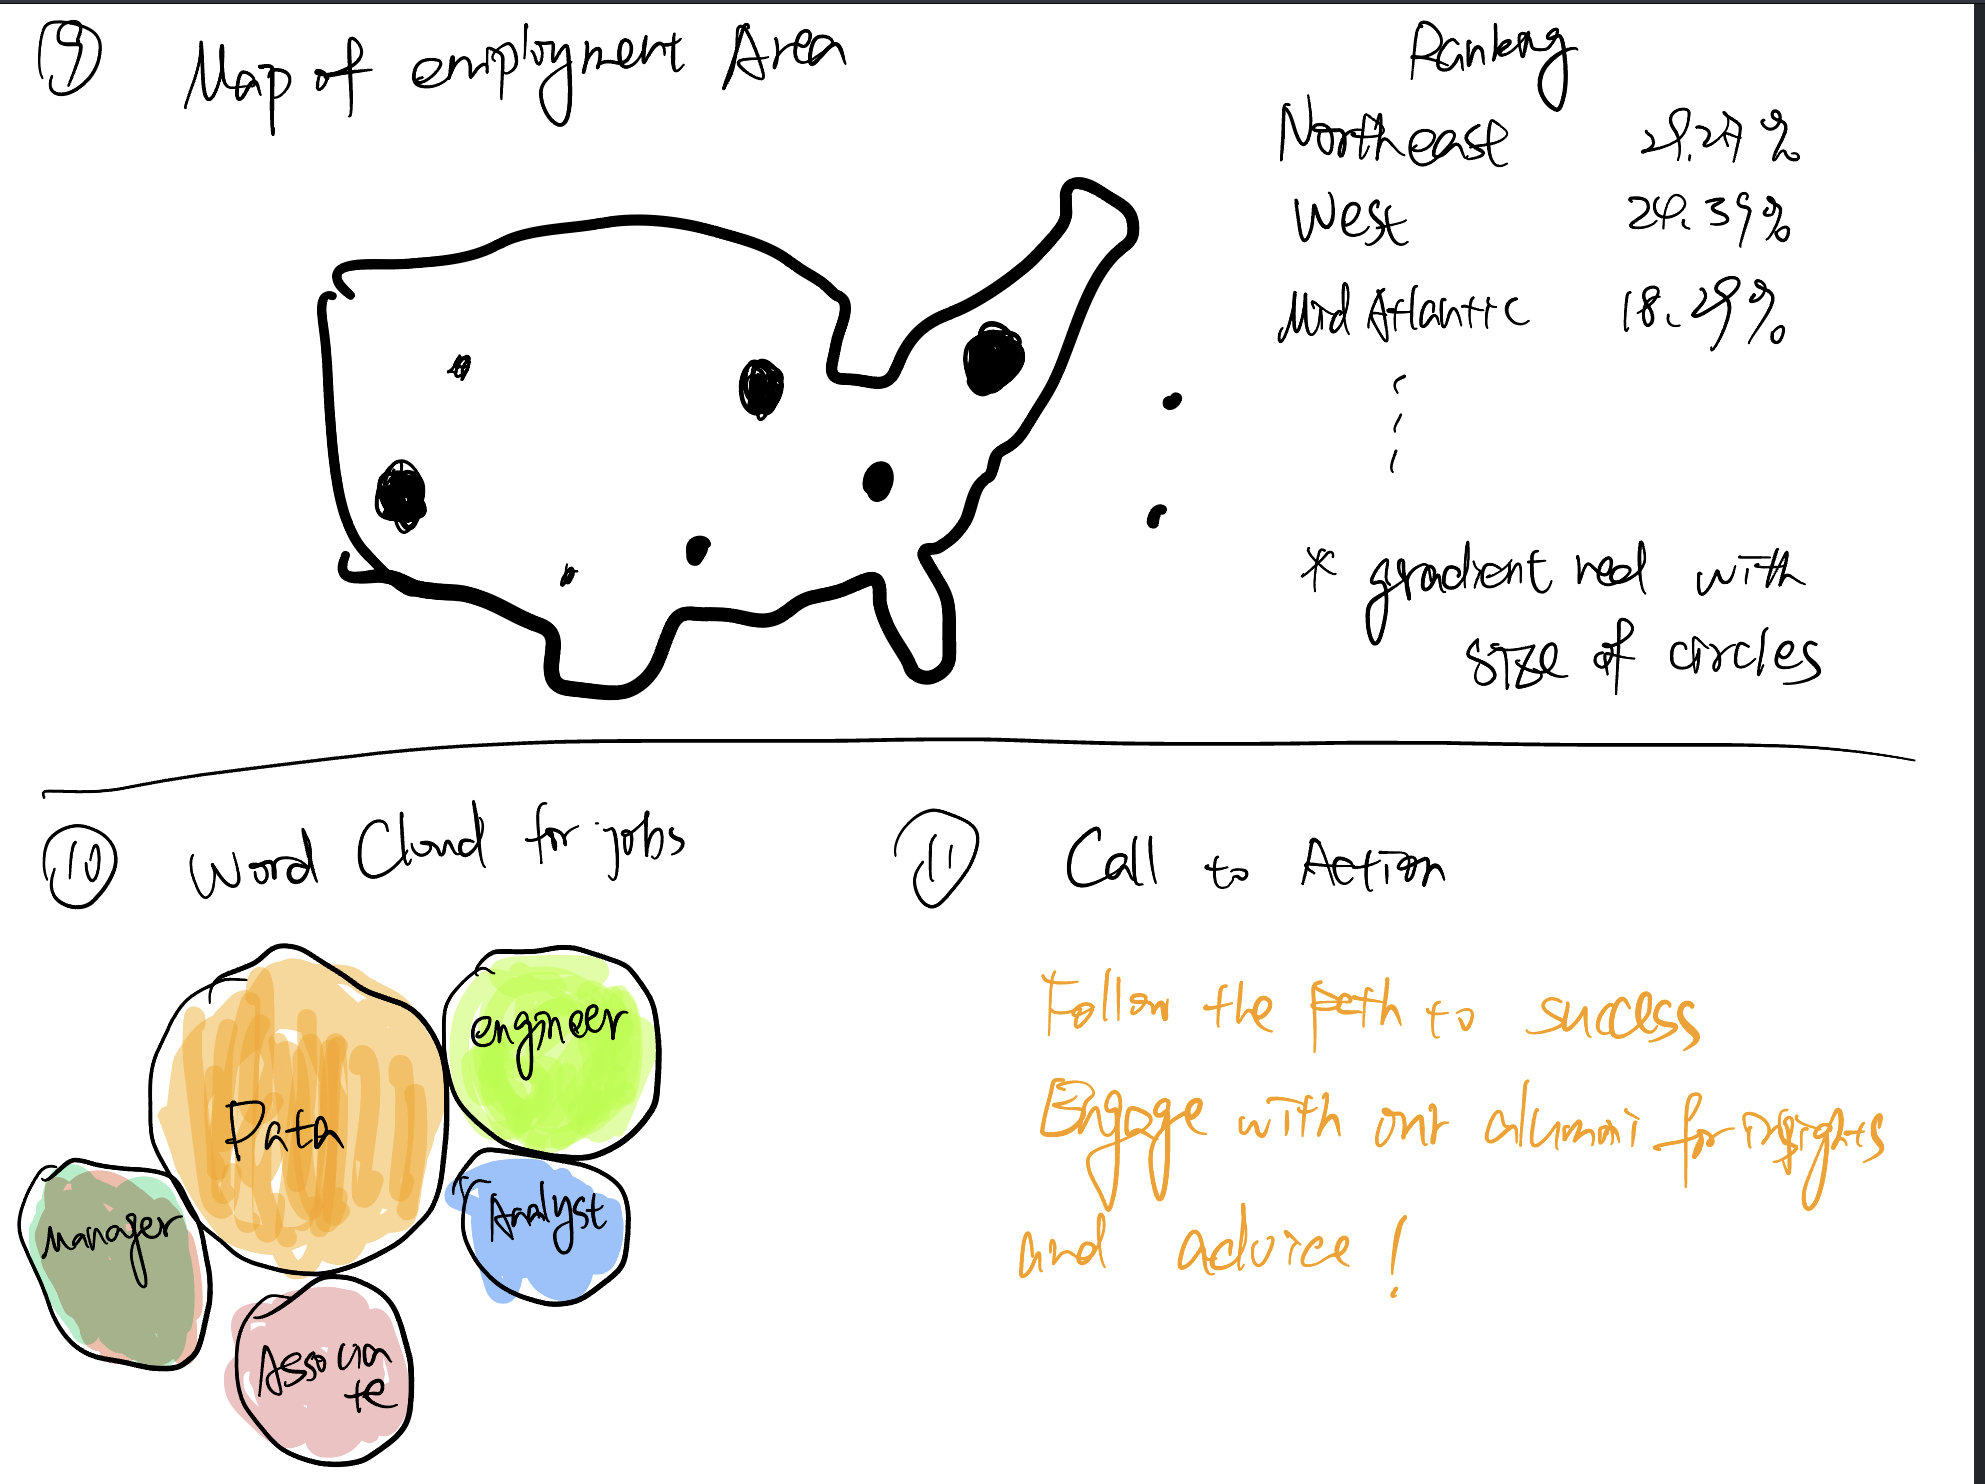 9
Map of employment Area
Ranking
Northeast 29.27%
West 24.39%
Mid Atlantic 18.29%
* gradient red with
size of circles
10 Word Cloud for jobs
Data
engineer
Analyst
Manager
Associa
te
11 Call to Action
Follow the path to success
Engage with our alumni for insights
and advice!